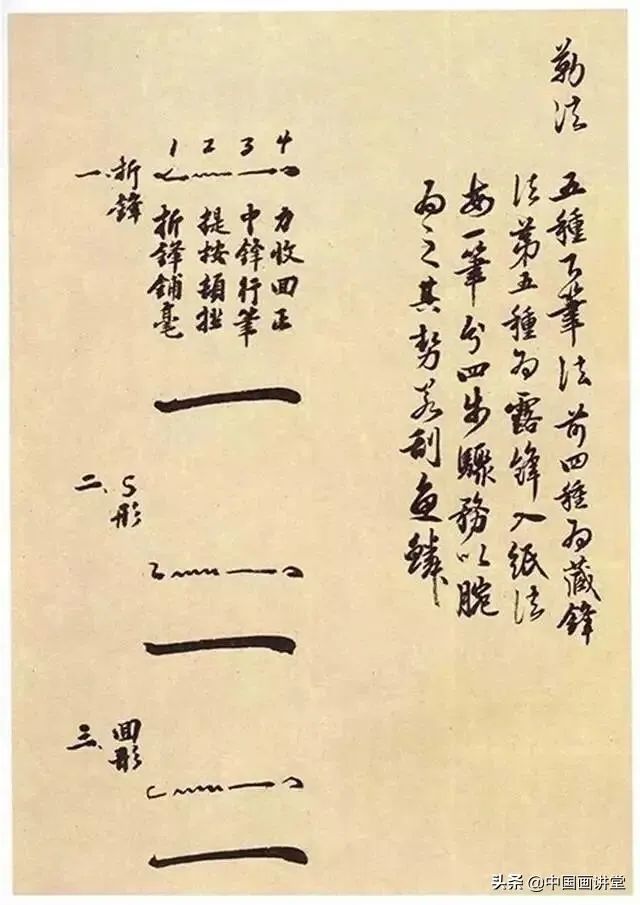 勒法
五種下筆法前四種为藏鋒
法第五種为露鋒入紙法
每一筆分四步驟務以腕
为之其势若刮鱼鳞
一、折鋒
1 2 3 4
折鋒鋪毫
提按頓挫
中鋒行筆
力收回正
二、S形
三、回形
头条 @中国画讲堂